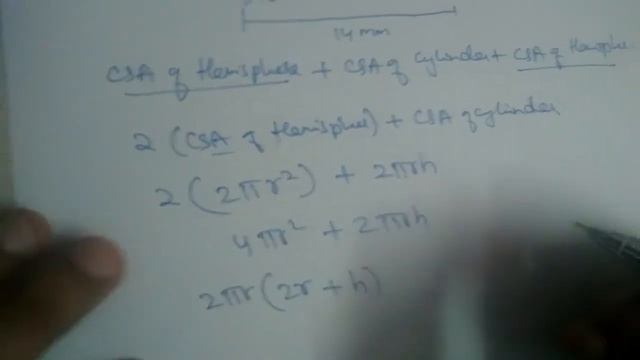 14 mm
CSA of Hemisphere + CSA of cylinder + CSA of Hemisphe
2 (CSA of Hemisphere) + CSA of cylinder
2 (2πr²) + 2πrh
4πr² + 2πrh
2πr (2r + h)